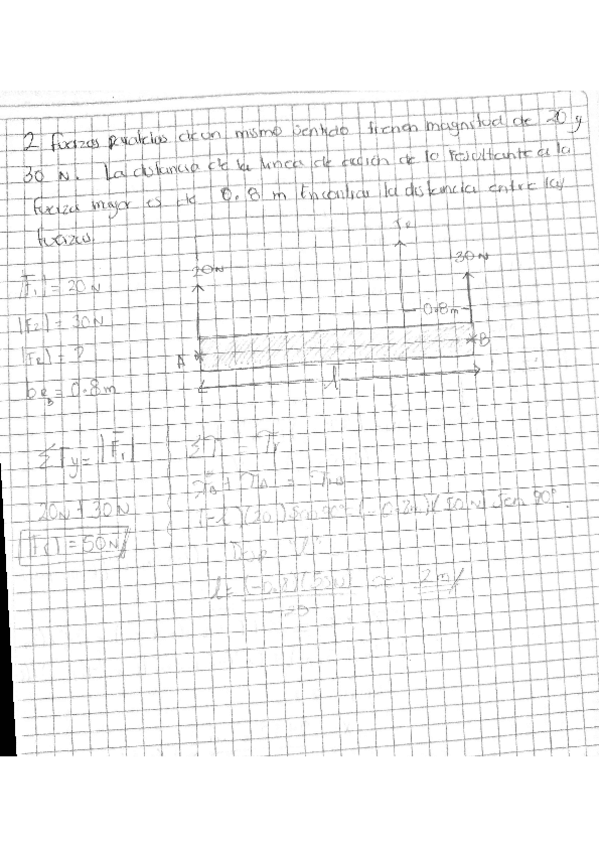 2 fuerzas paralelas de un mismo sentido tienen magnitud de 20 y
30 N. La distancia de la linea de acción de la resultante a la
fuerza mayor es de 0.8 m Encontrar la distancia entre las
fuerzas.
20N
30N
0.8m
A
B
l
|F₁| = 20N
|F₂| = 30N
|FR| = ?
= 0.8m
20N + 30N
= 50N
(-l)(20) Sen 90° = (-0.8m)(50N) Sen 90°.
Desp "l"
2m